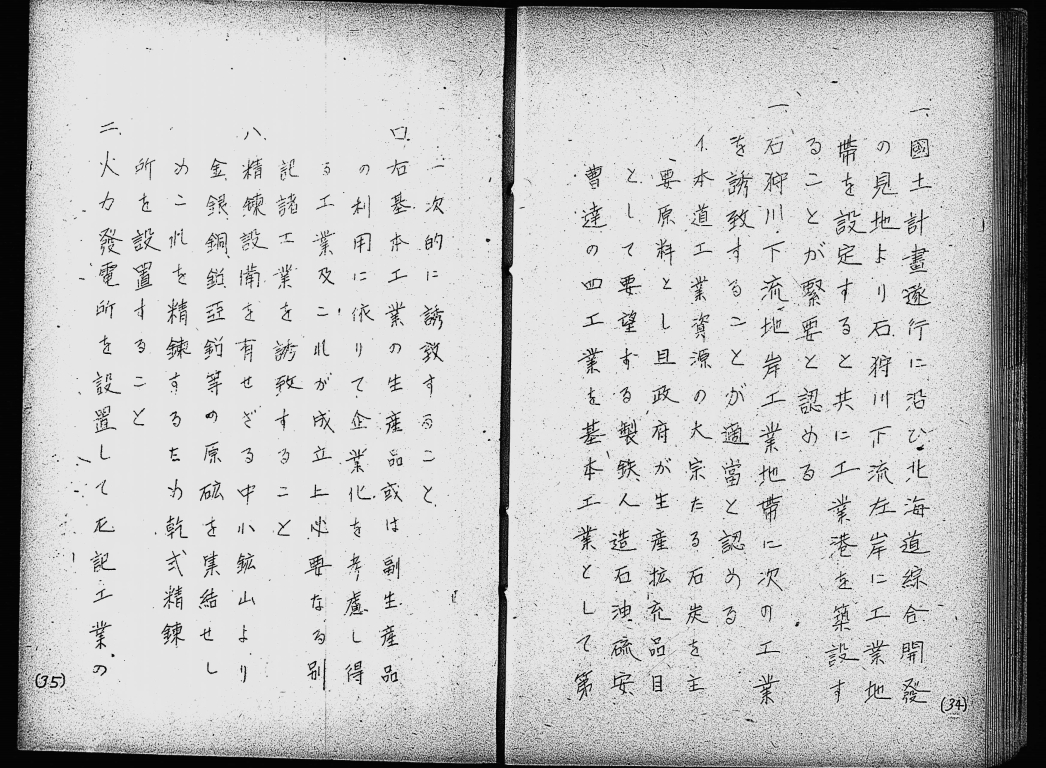 一、國土計畫遂行に沿ひ北海道綜合開發
の見地より石狩川下流左岸に工業地
帶を設定すると共に工業港を築設す
ることが緊要と認める
一、石狩川下流地岸工業地帶に次の工業
を誘致することが適當と認める
イ、本道工業資源の大宗たる石炭を主
要原料とし且政府が生産拡充品目
として要望する製鉄人造石油硫安
曹達の四工業を基本工業として第
(34)
一次的に誘致すること
ロ、右基本工業の生産品或は副生産品
の利用に依りて企業化を考慮し得
る工業及これが成立上必要なる別
記諸工業を誘致すること
ハ、精錬設備を有せざる中小鉱山より
金銀銅鉛亞鉛等の原砿を集結せし
めこれを精錬するため乾式精錬
所を設置すること
二、火力發電所を設置して記工業の
(35)